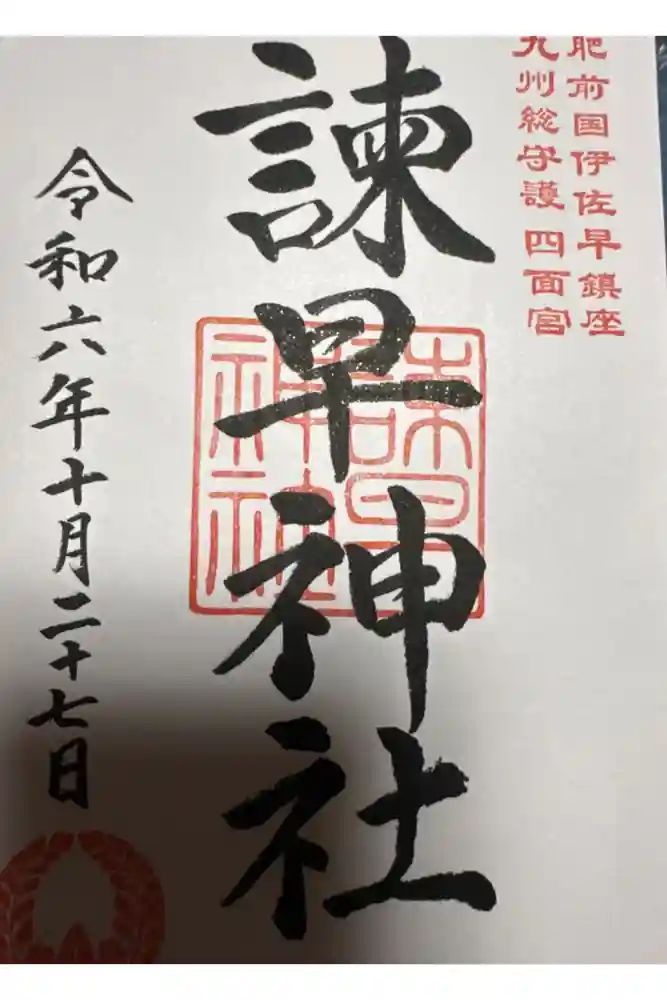 肥前国伊佐早鎮座
九州総守護 四面宮
諫早神社
諫早神社
令和六年十月二十七日